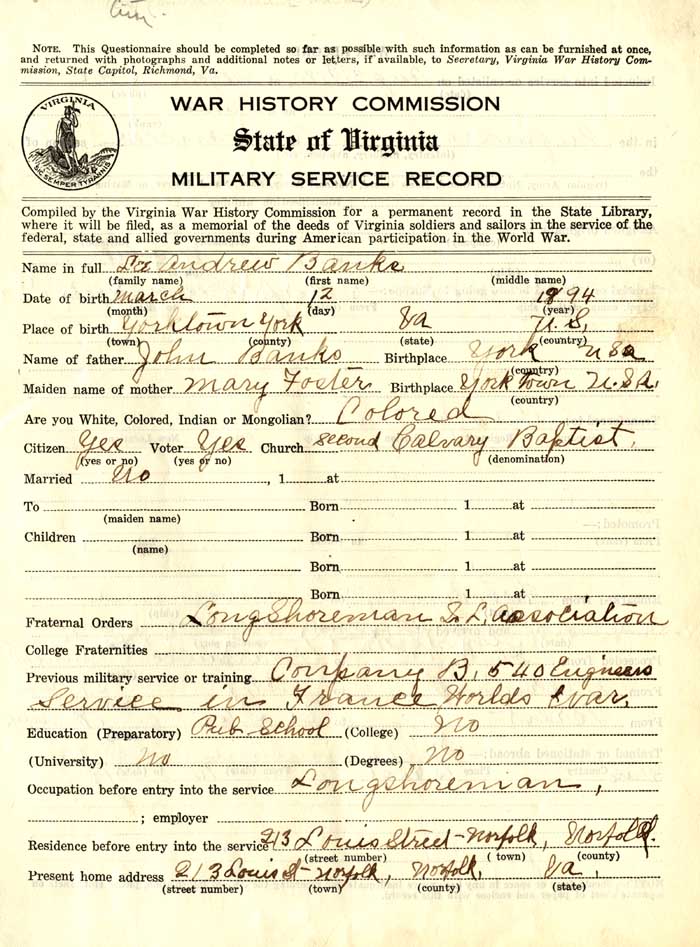 NOTE. This Questionnaire should be completed so far as possible with such information as can be furnished at once,
and returned with photographs and additional notes or letters, if available, to Secretary, Virginia War History Com-
mission, State Capitol, Richmond, Va.
VIRGINIA
SIC SEMPER TYRANNIS
WAR HISTORY COMMISSION
State of Virginia
MILITARY SERVICE RECORD
Compiled by the Virginia War History Commission for a permanent record in the State Library,
where it will be filed, as a memorial of the deeds of Virginia soldiers and sailors in the service of the
federal, state and allied governments during American participation in the World War.
Name in full Andrew Banks
(family name) (first name) (middle name)
Date of birth March 12 1894
(month) (day) (year)
Place of birth Yorktown York Va U.S.
(town) (county) (state) (country)
Name of father John Banks Birthplace York USa
(country)
Maiden name of mother Mary Foster Birthplace York town U.S.A.
(country)
Are you White, Colored, Indian or Mongolian? Colored
Citizen Yes Voter Yes Church Second Calvary Baptist.
(yes or no) (yes or no) (denomination)
Married No , 1 at
To Born 1 at
(maiden name)
Children Born 1 at
(name)
Born 1 at
Born 1 at
Fraternal Orders Longshoreman Association
College Fraternities
Previous military service or training Company B, 540 Engineers
Service in France Worlds War.
Education (Preparatory) Pub School (College) No
(University) No (Degrees) No
Occupation before entry into the service Longshoreman,
; employer
Residence before entry into the service 213 Louis Street-Norfolk, Norfolk.
(street number) (town) (county)
Present home address 213 Louis St-Norfolk, Norfolk, Va,
(street number) (town) (county) (state)